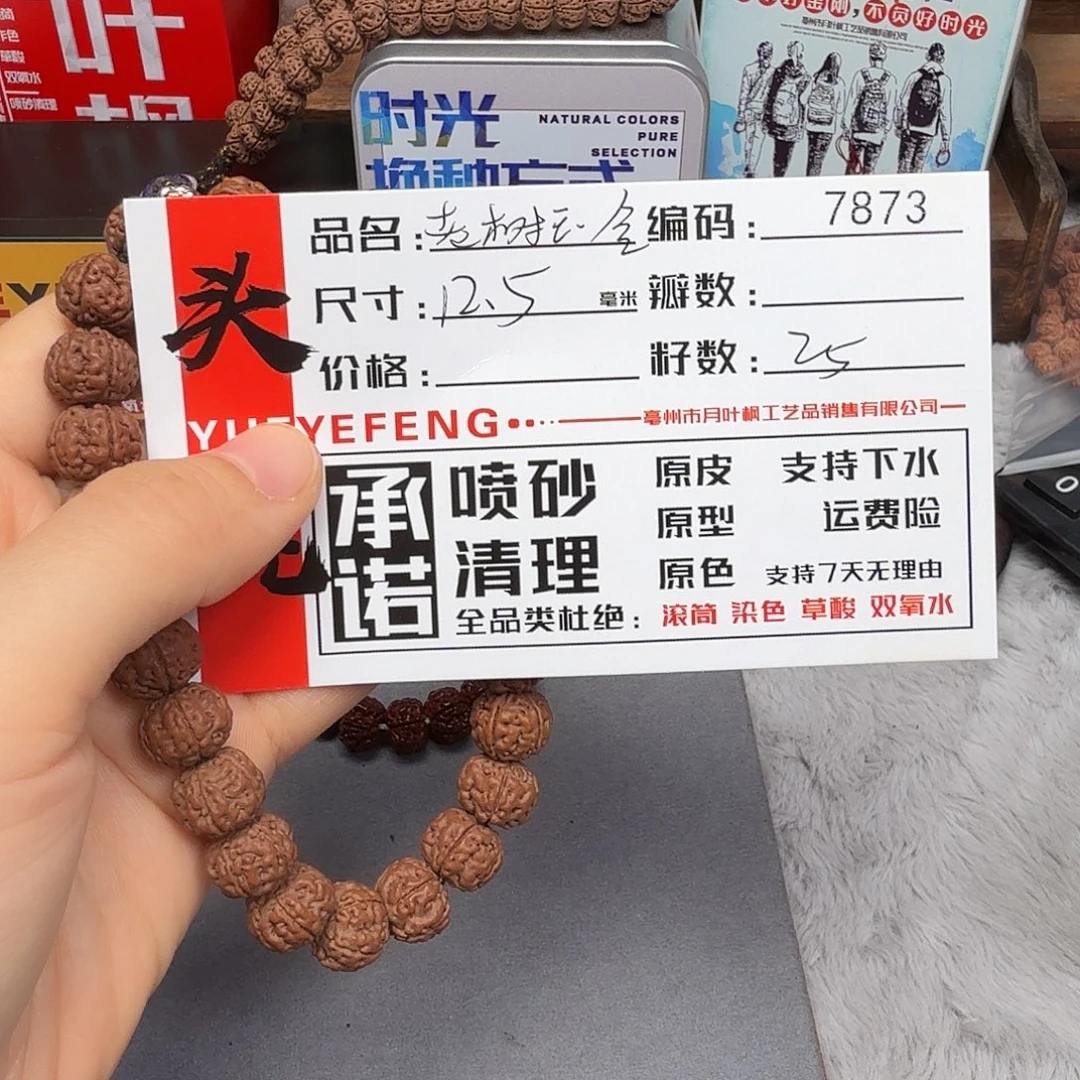 叶
双氧水
喷砂清理
时光
NATURAL COLORS
PURE
SELECTION
换种方式
不负好时光
亳州市月叶枫工艺品销售有限公司
头
品名：老树桩金
编码：7873
尺寸：12.5毫米
瓣数：
价格：
籽数：25
YUEYEFENG
亳州市月叶枫工艺品销售有限公司
承诺
喷砂
清理
原皮 支持下水
原型 运费险
原色 支持7天无理由
全品类杜绝：滚筒 染色 草酸 双氧水